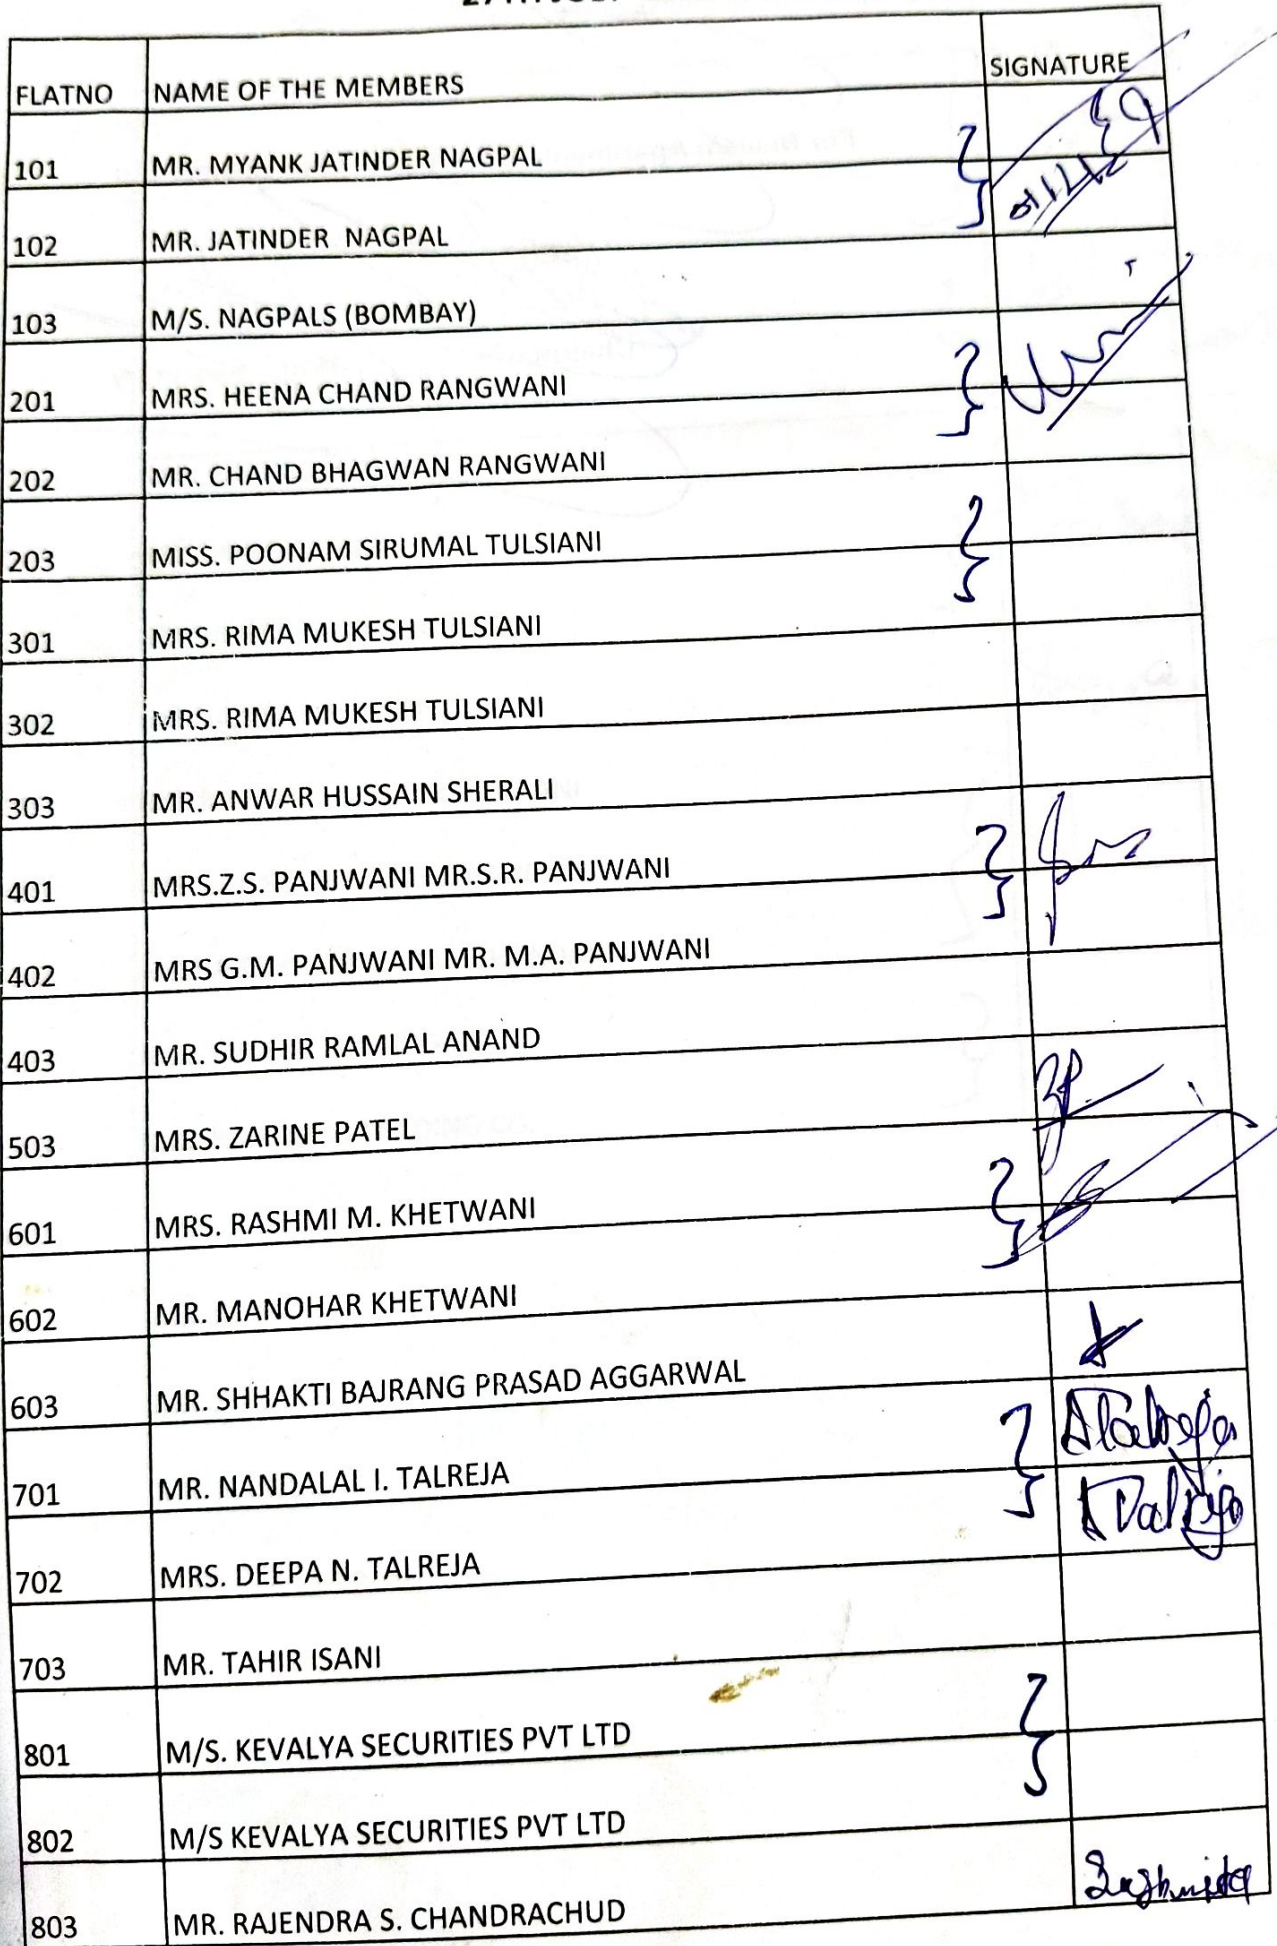 FLATNO NAME OF THE MEMBERS SIGNATURE
101 MR. MYANK JATINDER NAGPAL
102 MR. JATINDER NAGPAL
103 M/S. NAGPALS (BOMBAY)
201 MRS. HEENA CHAND RANGWANI
202 MR. CHAND BHAGWAN RANGWANI
203 MISS. POONAM SIRUMAL TULSIANI
301 MRS. RIMA MUKESH TULSIANI
302 MRS. RIMA MUKESH TULSIANI
303 MR. ANWAR HUSSAIN SHERALI
401 MRS.Z.S. PANJWANI MR.S.R. PANJWANI
402 MRS G.M. PANJWANI MR. M.A. PANJWANI
403 MR. SUDHIR RAMLAL ANAND
503 MRS. ZARINE PATEL
601 MRS. RASHMI M. KHETWANI
602 MR. MANOHAR KHETWANI
603 MR. SHHAKTI BAJRANG PRASAD AGGARWAL
701 MR. NANDALAL I. TALREJA
702 MRS. DEEPA N. TALREJA
703 MR. TAHIR ISANI
801 M/S. KEVALYA SECURITIES PVT LTD
802 M/S KEVALYA SECURITIES PVT LTD
803 MR. RAJENDRA S. CHANDRACHUD